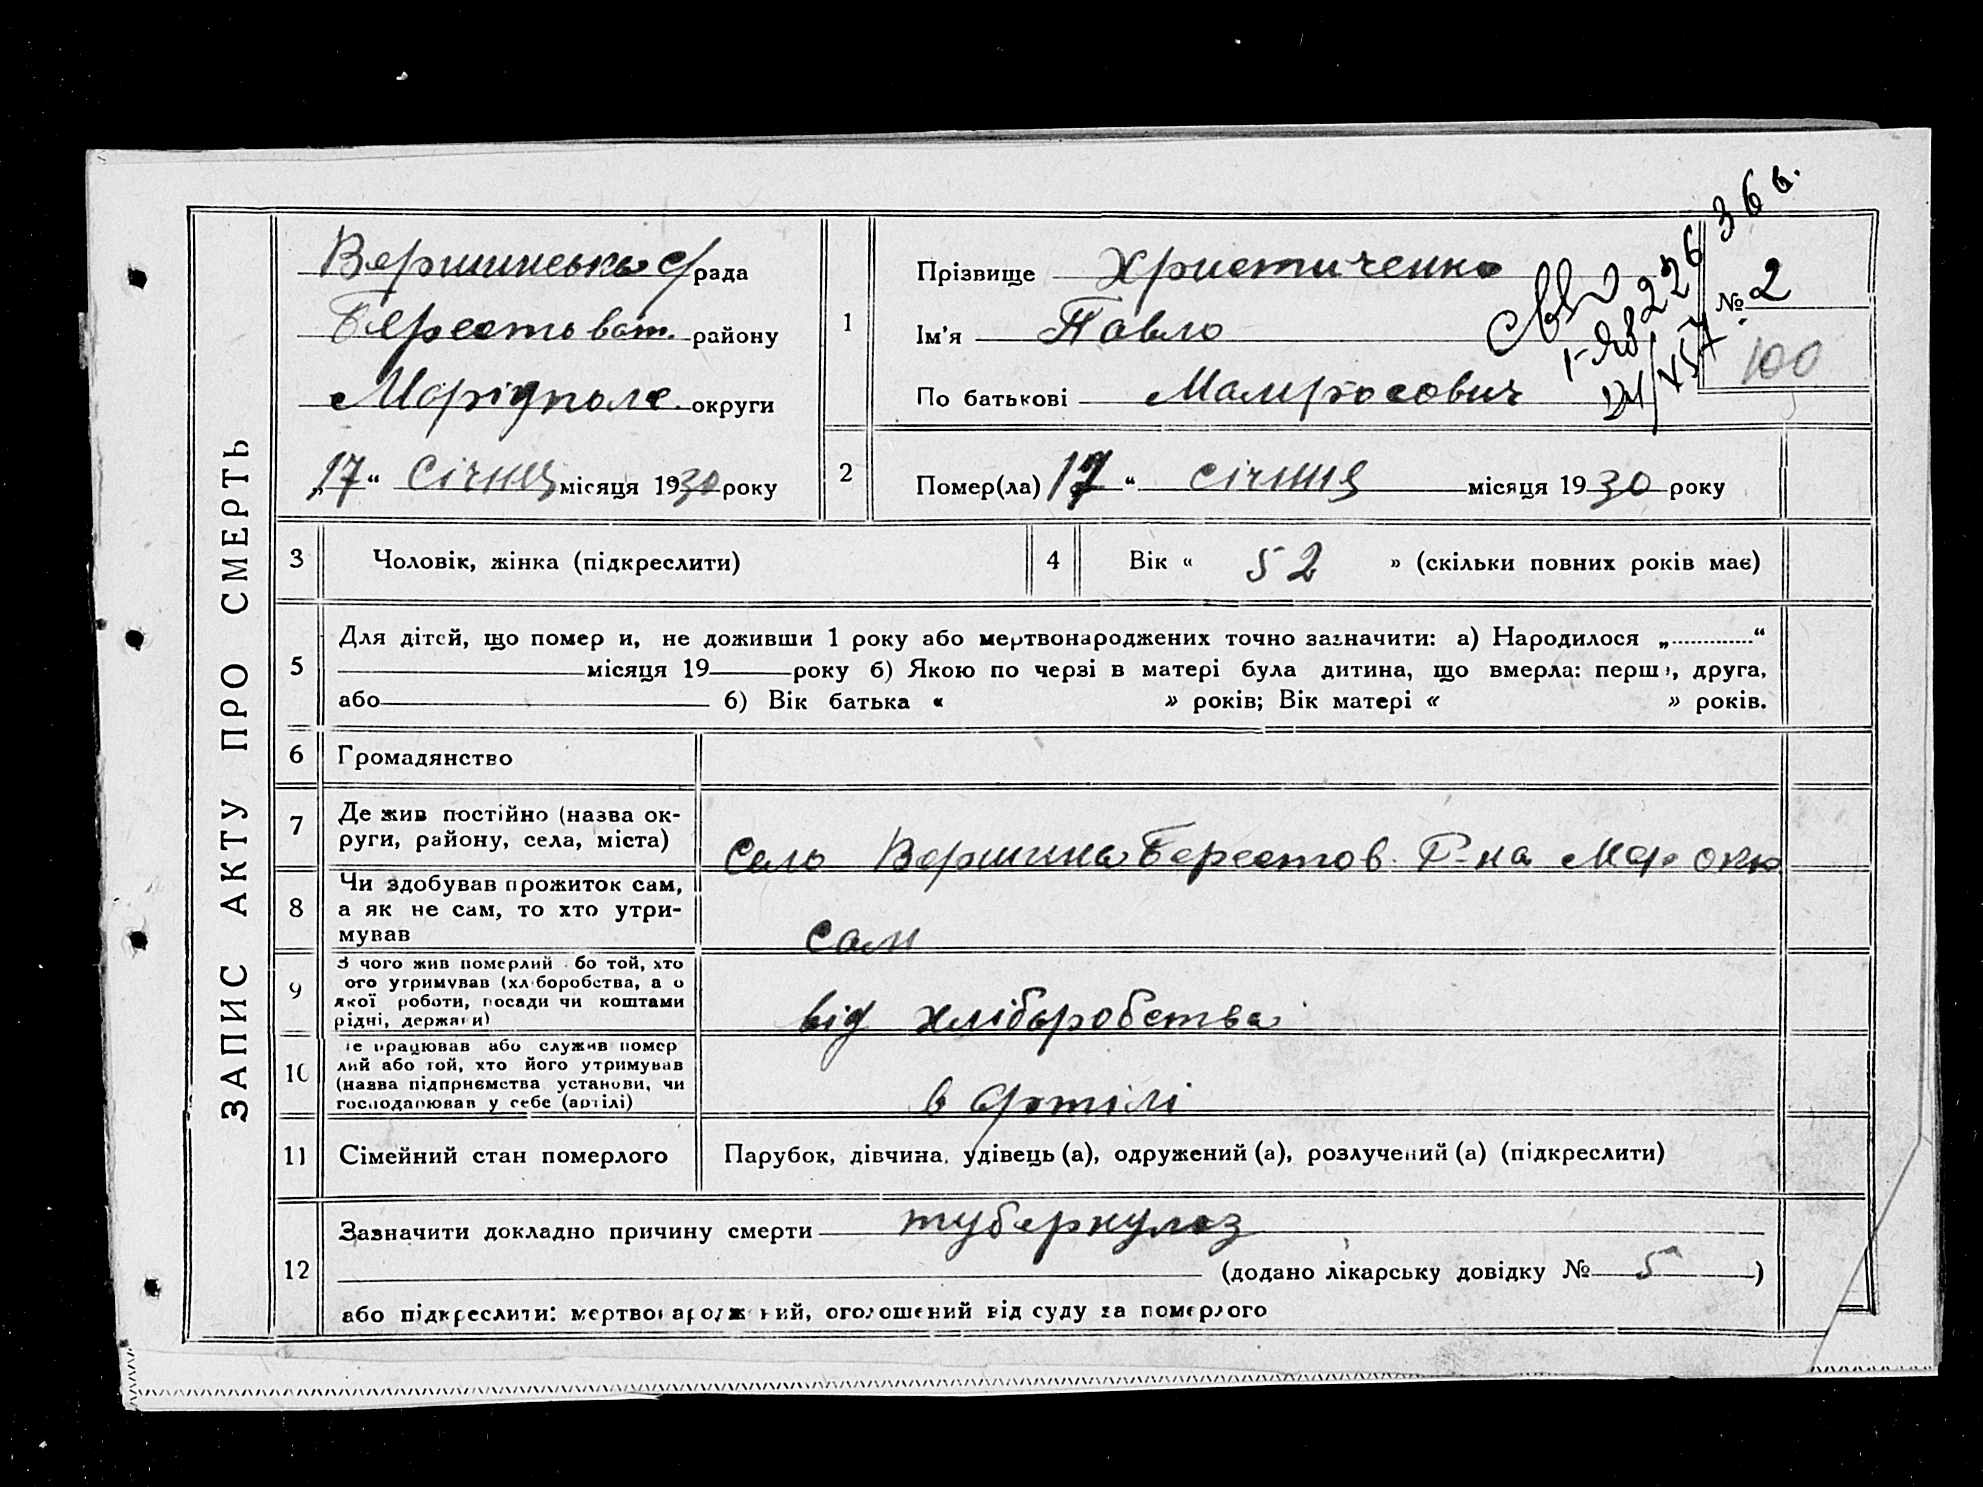 ЗАПИС АКТУ ПРО СМЕРТЬ
Вершинська с/рада
Берестоват. району
Маріупол. округи
„17“ Січня місяця 1930 року
1
Прізвище Христиченко
Ім'я Павло
По батькові Мамросович
36 в.
№ 2
100
2
Помер(ла) 17 “ січня місяця 1930 року
3 Чоловік, жінка (підкреслити)
4 Вік « 52 » (скільки повних років має)
5
Для дітей, що помер и, не доживши 1 року або мертвонароджених точно зазначити: а) Народилося „ “
місяця 19 року б) Якою по черзі в матері була дитина, що вмерла: перш , друга,
або б) Вік батька « » років; Вік матері « » років.
6 Громадянство
7 Де жив постійно (назва ок-
руги, району, села, міста)
Село Вершина Берестов. Р-на Мар. окр
8 Чи здобував прожиток сам,
а як не сам, то хто утри-
мував
сам
9 З чого жив померлий бо той, хто
ого утримував (хл боробства, а о
якої роботи, посади чи коштами
рідні, держа и)
від хліборобства
10 е працював або служив помер
лий або той, хто його утримував
(назва підприємства установи, чи
господарював у себе (артілі)
в артілі
11 Сімейний стан померлого
Парубок, дівчина, удівець (а), одружений (а), розлучений (а) (підкреслити)
12
Зазначити докладно причину смерти туберкульоз
(додано лікарську довідку № 5 )
або підкреслити: мертвонароджений, оголошений від суду за померлого